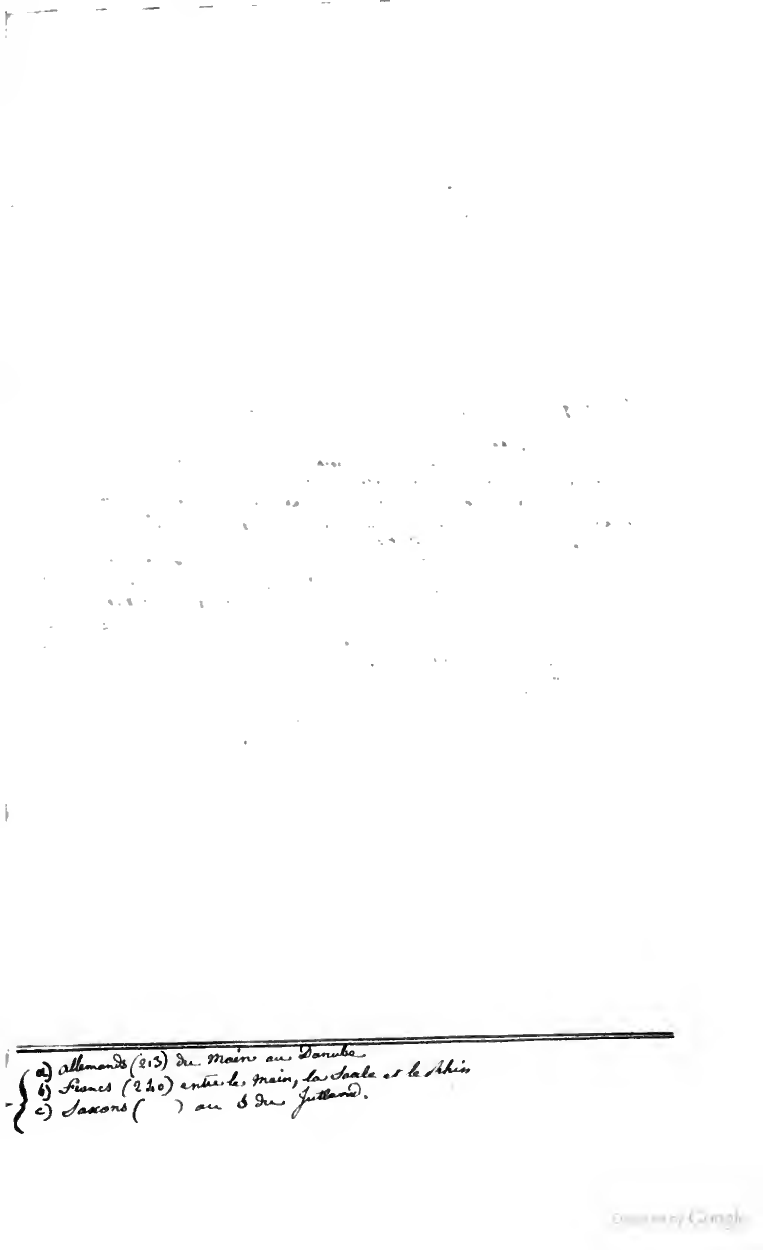 a) Allemands (213) du Main au Danube
b) Francs (240) entre le Main, la Saale et le Rhin
c) Saxons ( ) au S du Jutland.
Digitized by Google